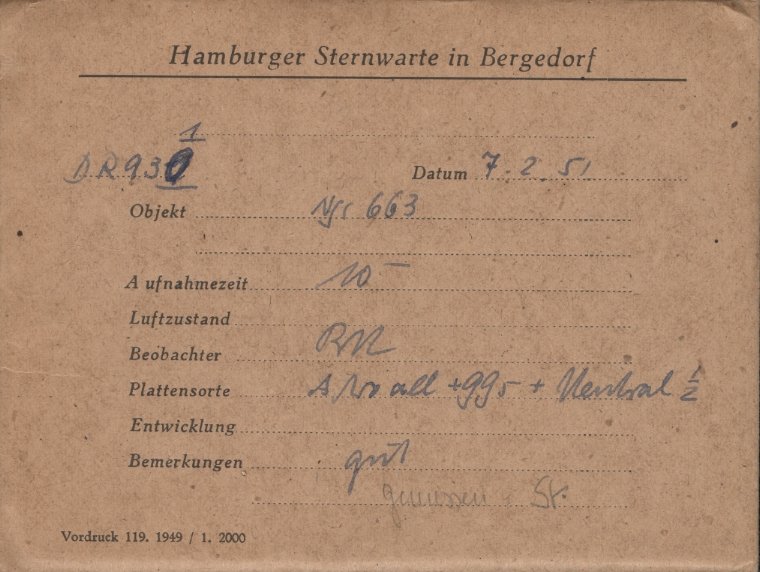 Hamburger Sternwarte in Bergedorf
1
DR 930 Datum 7. 2. 51
Objekt NGC 663
Aufnahmezeit 10
Luftzustand
Beobachter
Plattensorte all + GG5 + Neutral 1/2
Entwicklung
Bemerkungen gut
gemessen St.
Vordruck 119. 1949 / 1. 2000